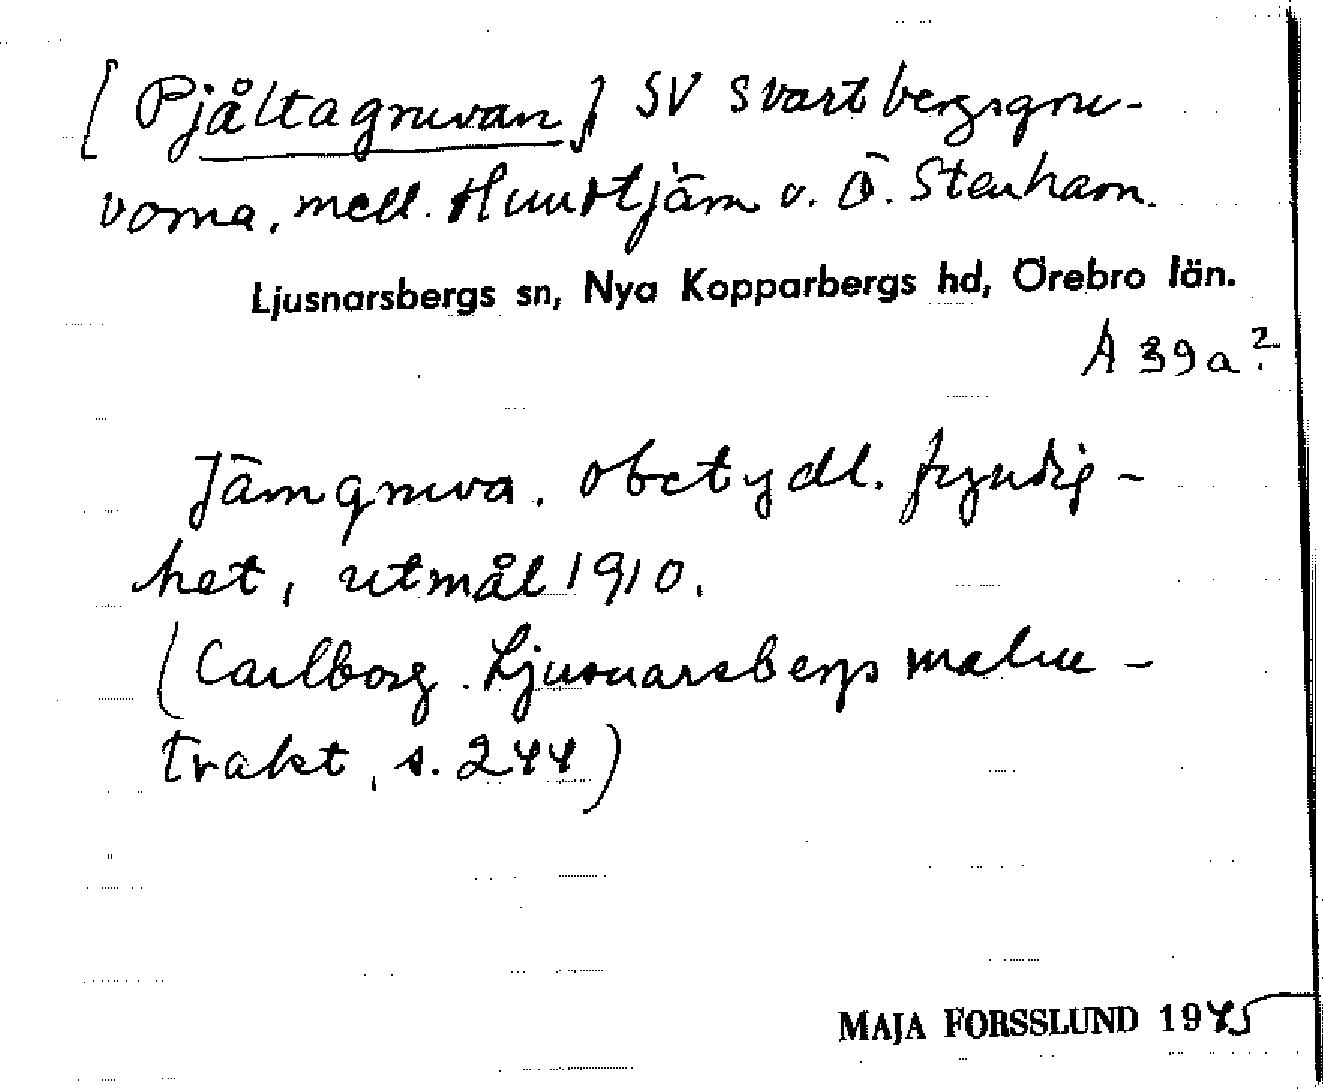 [Pjåltagruvan] SV Svartbergsgru-
vorna, mell. Huvtjärn o. Ö. Stenharn.
Ljusnarsbergs sn, Nya Kopparbergs hd, Örebro län.
A 39a?
Järngruva. Obetydl. fyndig-
het, utmål 1910.
(Carlborg. Ljusnarsbergs malm-
trakt, s. 244)
MAJA FORSSLUND 1945